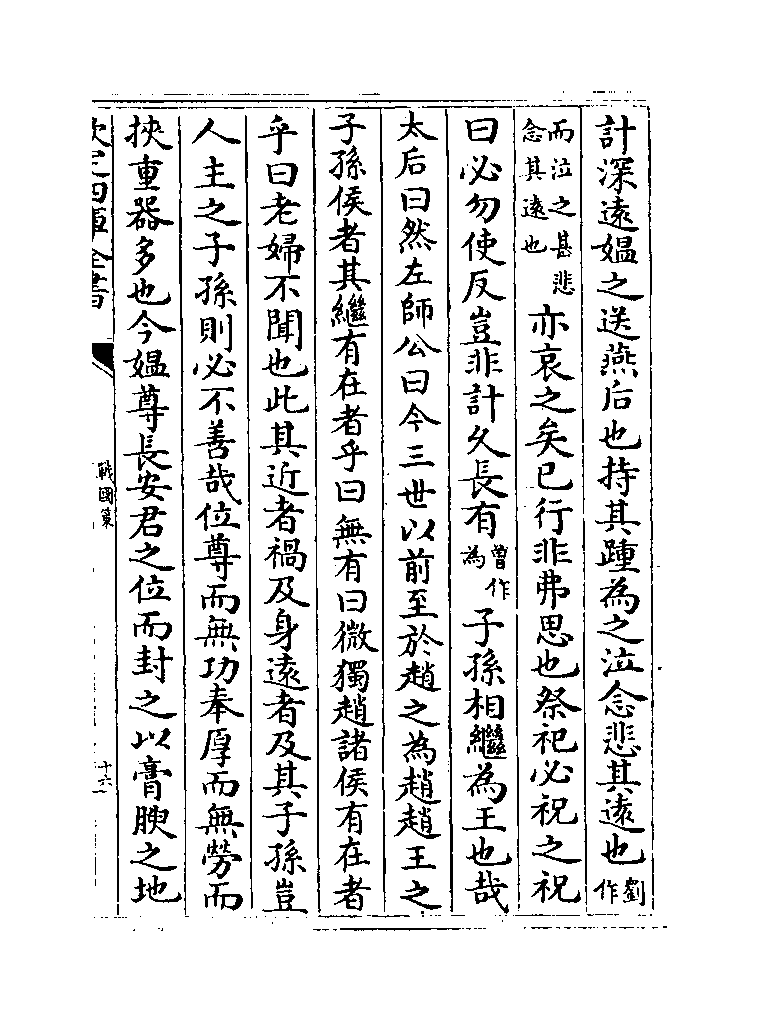 計深遠媪之送燕后也持其踵為之泣念悲其遠也劉作
而泣之甚悲念其遠也亦哀之矣已行非弗思也祭祀必祝之祝
曰必勿使反豈非計久長有曾作為子孫相繼為王也哉
太后曰然左師公曰今三世以前至於趙之為趙趙王之
子孫侯者其繼有在者乎曰無有曰微獨趙諸侯有在者
乎曰老婦不聞也此其近者禍及身遠者及其子孫豈
人主之子孫則必不善哉位尊而無功奉厚而無勞而
挾重器多也今媪尊長安君之位而封之以膏腴之地
欽定四庫全書
戰國策
十六